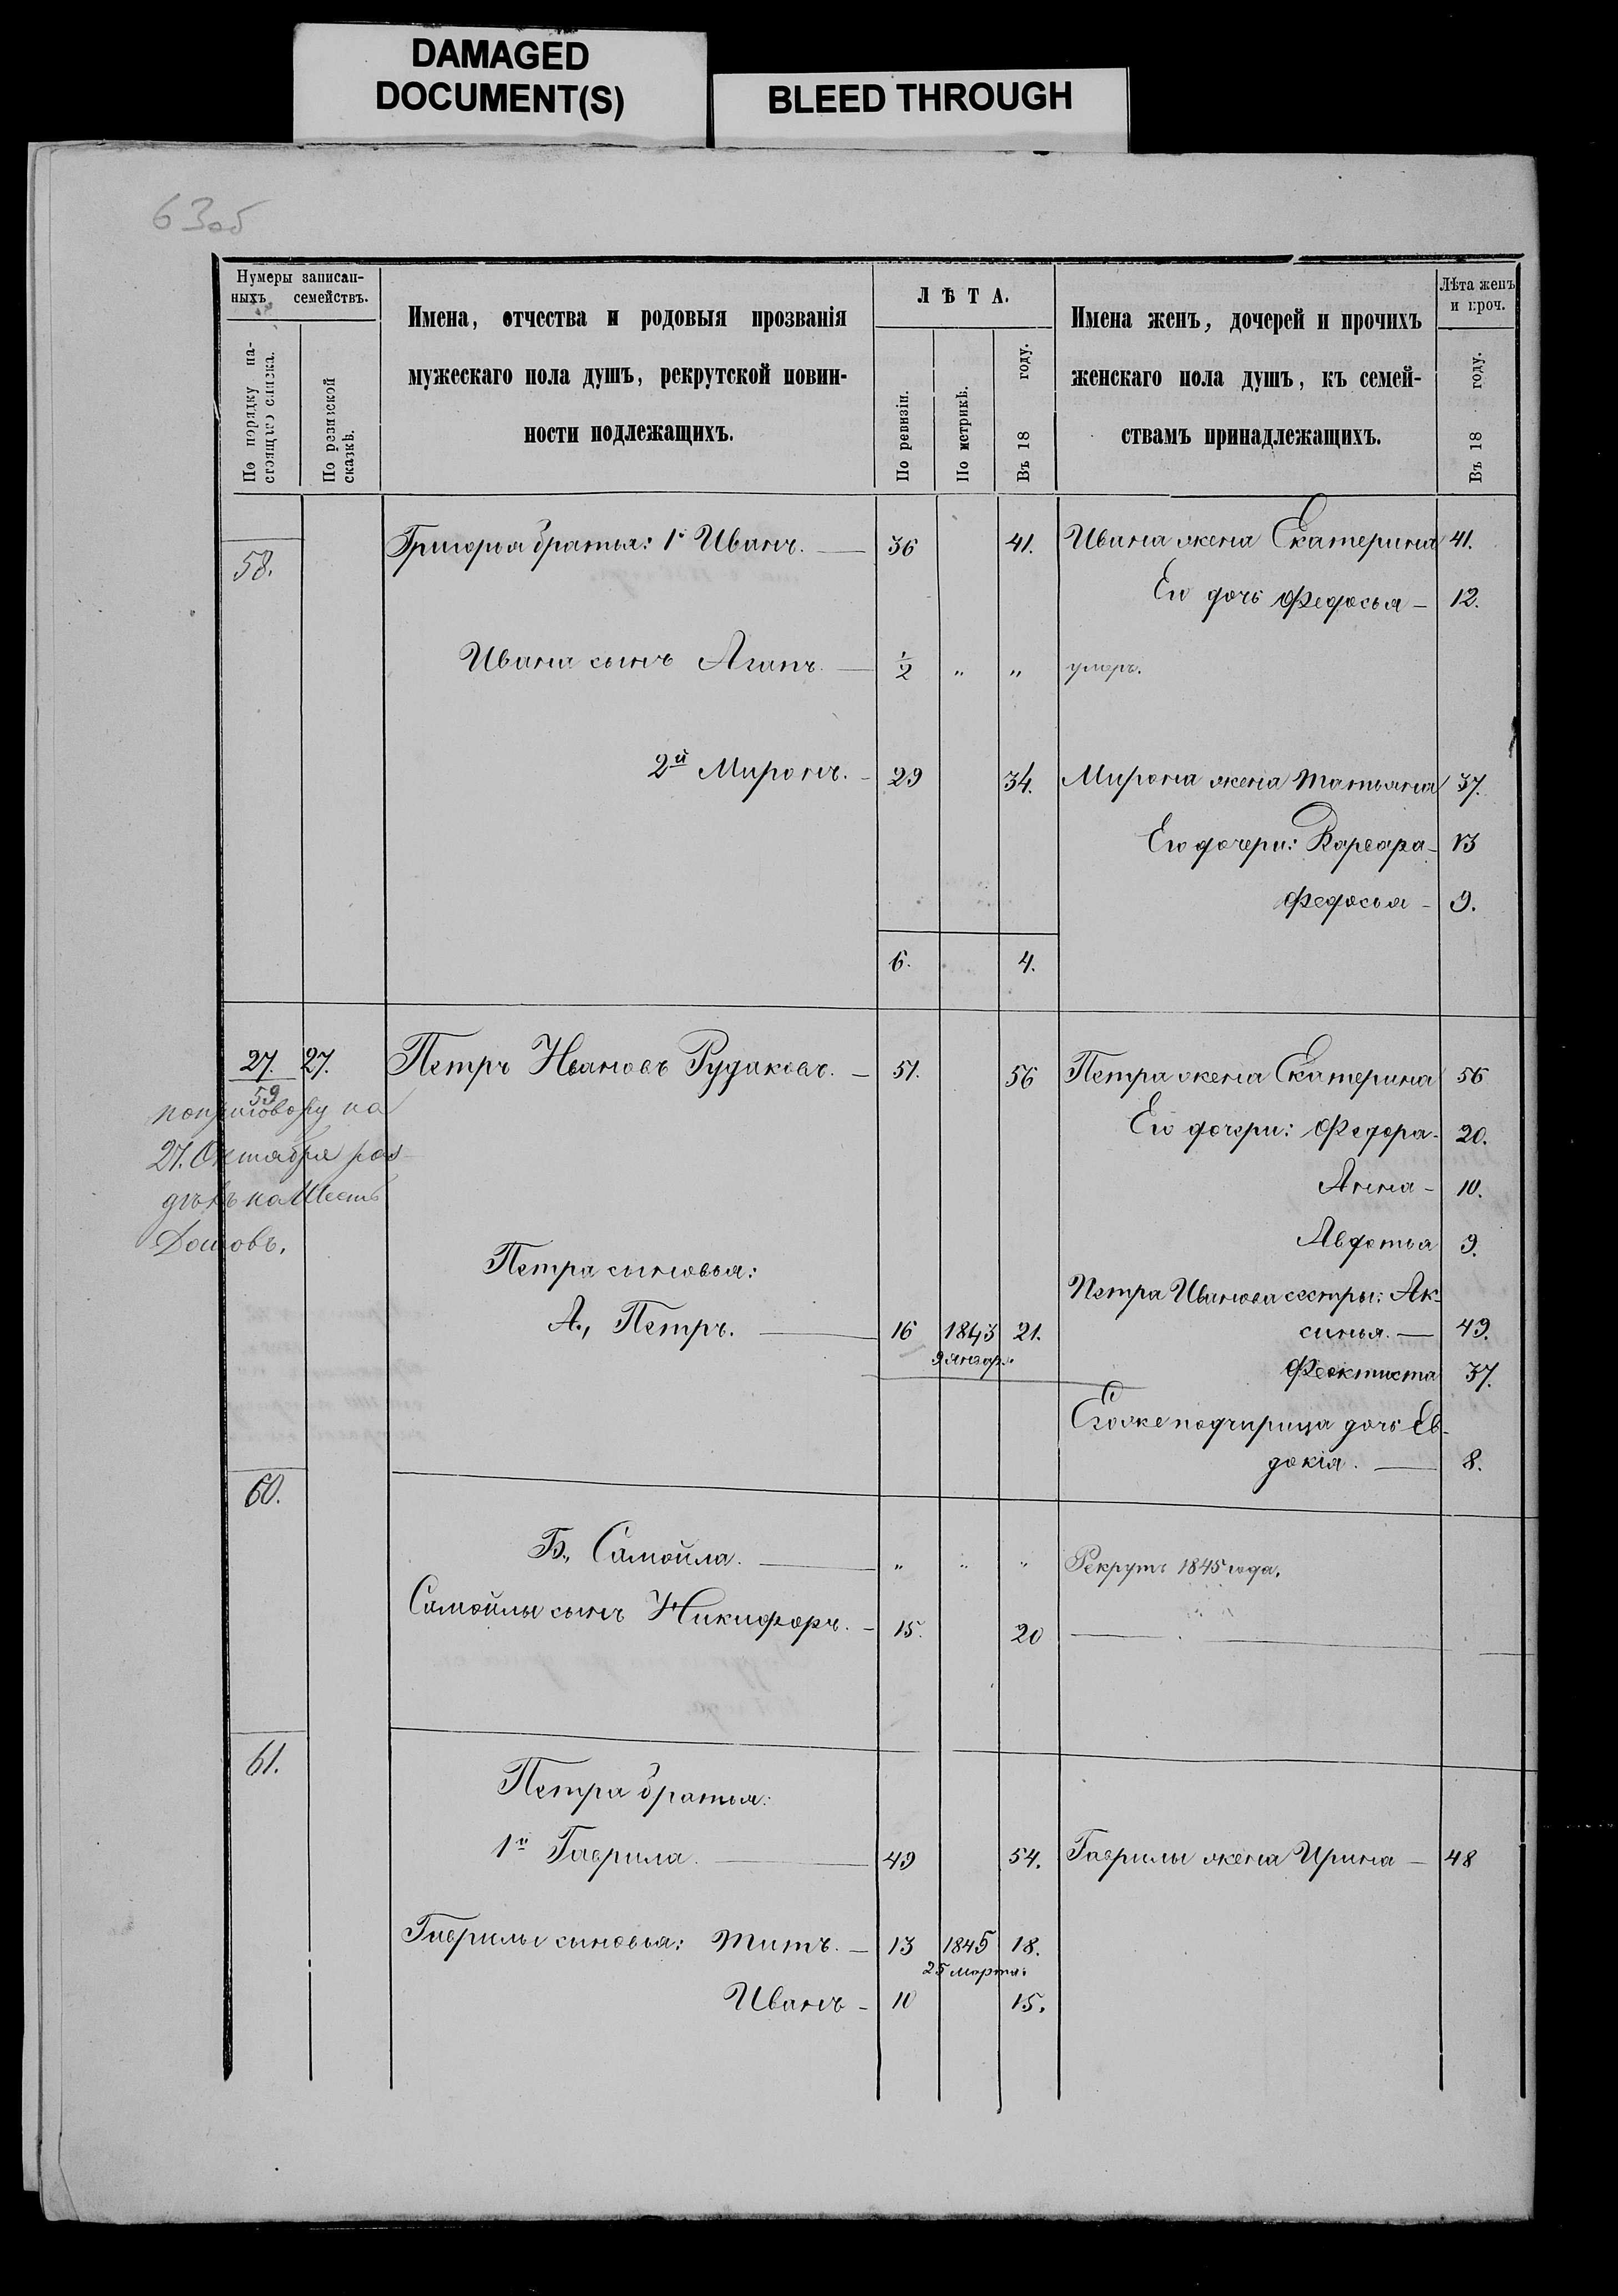 DAMAGED
DOCUMENT(S)
BLEED THROUGH
63об
Нумеры записан-
ныхъ семействъ.
По порядку на-
стоящаго списка.
По ревизской
сказкѣ.
Имена, отчества и родовыя прозванія
мужескаго пола душъ, рекрутской повин-
ности подлежащихъ.
ЛѢТА.
По ревизіи.
По метрикѣ.
Въ 18 году.
Имена женъ, дочерей и прочихъ
женскаго пола душъ, къ семей-
ствамъ принадлежащихъ.
Лѣта женъ
и проч.
Въ 18 году.
58. Григорья братья: 1й Иванъ. — 36 41. Ивана жена Екатерина 41.
Его дочь Федосья — 12.
Ивана сынъ Агапъ. — ½ " " умеръ.
2й Миронъ. — 29 34. Мирона жена Татьяна 37.
Его дочери: Варвара — 13
Федосья — 9.
6. 4.
27. 27. Петръ Ивановъ Рудаковъ. — 51. 56 Петра жена Екатерина 56
59
по приговору на
27. Октября раз-
дѣлъ на Шесть
Домовъ.
Его дочери: Федора — 20.
Анна — 10.
Авдотья 9.
Петра сыновья:
Петра Иванова сестры: Ак-
А., Петръ. — 16 1843 21. синья. — 49.
9 Январ.
Феоктиста 37.
Его же подчерица дочь Ев-
докія. — 8.
60.
Б., Самойла. — " " " Рекрутъ 1845 года.
Самойлы сынъ Никифоръ. — 15. 20 —
61.
Петра братья:
1й Гаврила. — 49 54. Гаврилы жена Ирина — 48
Гаврилы сыновья: Титъ. — 13 1845 18.
25 Марта.
Иванъ — 10 15.